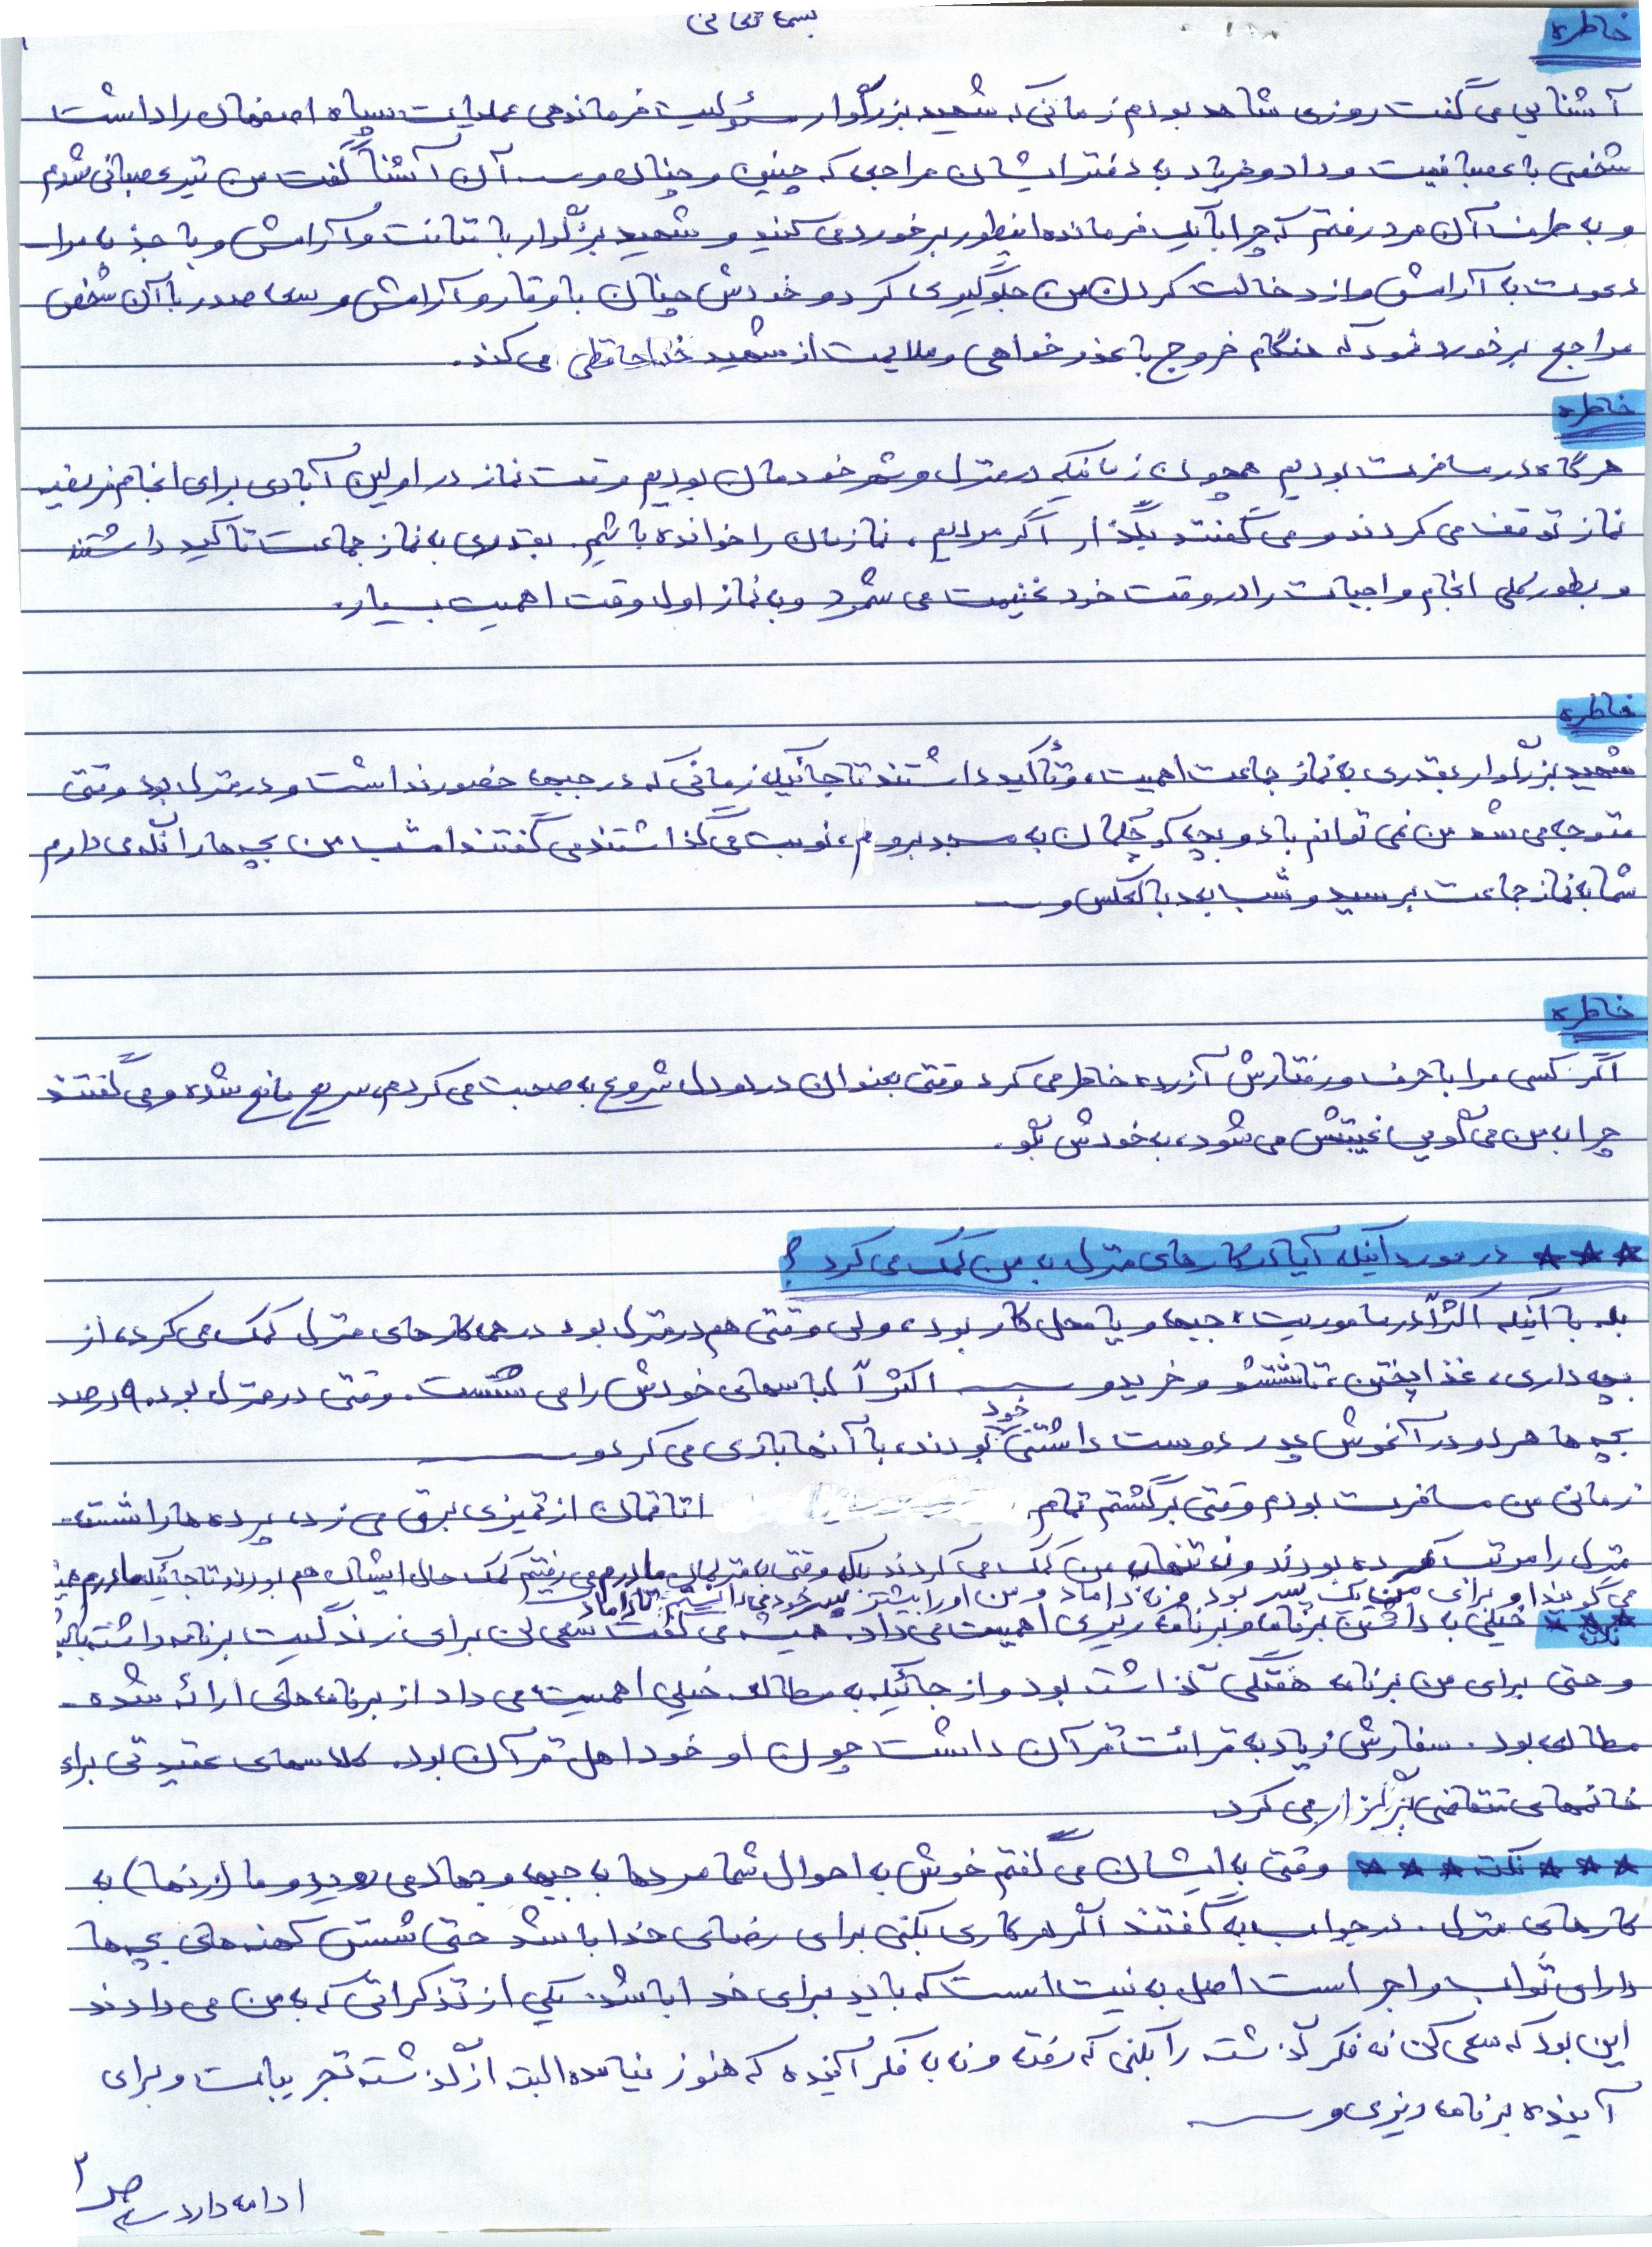 بسمه تعالی
خاطره
آشنایی می گفت روزی شاهد بودم زمانی که شهید بزرگوار مسئولیت فرماندهی عملیات سپاه اصفهان را داشت
شخصی با عصبانیت و داد و فریاد به دفتر ایشان مراجعه که چنین و چنان و ... آن آشنا گفت من نیز عصبانی شدم
و به طرف آن مرد رفتم که چرا با یک فرمانده اینطور برخورد می کنید و شهید بزرگوار با متانت و آرامش و با جذبه مرا
دعوت به آرامش و از دخالت کردن من جلوگیری کرد و خودش چنان با وقار و آرامش و سعه صدر با آن شخص
مراجع برخورد نمود که هنگام خروج با عذرخواهی و ملایمت از شهید خداحافظی می کند.
خاطره
هرگاه در مسافرت بودیم همچون زمانیکه در منزل و شهر خودمان بودیم وقت نماز در اولین آبادی برای انجام فریضه
نماز توقف می کردند و می گفتند بگذار اگر مردیم، نمازمان را خوانده باشیم. بقدری به نماز جماعت تاکید داشتند
و بطور کلی انجام واجبات را در وقت خود غنیمت می شمرد و به نماز اول وقت اهمیت بسیار.
خاطره
شهید بزرگوار بقدری به نماز جماعت اهمیت و تأکید داشتند تا جائیکه زمانی که در جبهه حضور نداشت و در منزل بود وقتی
متوجه می شد من نمی توانم با دو بچه کوچکمان به مسجد بروم، نوبت می گذاشتند می گفتند امشب من بچه ها را نگه می دارم
شما به نماز جماعت برسید و شب بعد بالعکس و ...
خاطره
اگر کسی مرا با حرف و رفتارش آزرده خاطر می کرد وقتی بعنوان درد و دل شروع به صحبت می کردم، سریع مانع شده و می گفتند
چرا به من می گویی غیبتش می شود، به خودش بگو.
*** در مورد اینکه آیا در کارهای منزل به من کمک می کرد؟
بله با اینکه اکثراً در ماموریت، جبهه و یا محل کار بود، ولی وقتی هم در منزل بود در همه کارهای منزل کمک می کرد، از
بچه داری، غذا پختن، تا شستشو و خرید و ... اکثراً لباسهای خودش را می شست. وقتی در منزل بود ۹۰ درصد
بچه ها هر دو در آغوش پدر دوست داشتنی خود بودند، با آنها بازی می کرد و ...
زمانی من مسافرت بودم وقتی برگشتم تمام اتاقمان از تمیزی برق می زد، پرده ها را شسته
منزل را مرتب کرده بودند و نه تنها به من کمک می کردند بلکه وقتی به منزل مادرم می رفتیم کمک حال ایشان هم بودند تا جائیکه مادرم
می گویند او برای من یک پسر بود و نه داماد و من او را بیشتر پسر خود می دانستم تا داماد
*** نکته خیلی به داشتن برنامه و برنامه ریزی اهمیت می داد. همیشه می گفت سعی کن برای زندگیت برنامه داشته باشی
و حتی برای من برنامه هفتگی گذاشته بود و از جائیکه به مطالعه خیلی اهمیت می داد از برنامه های ارائه شده
مطالعه بود. سفارش زیاد به قرائت قرآن داشت چون او خود اهل قرآن بود. کلاسهای عقیدتی برای
خانمهای متقاضی برگزار می کرد.
*** نکته *** وقتی به ایشان می گفتم خوش به احوال شما مردها به جبهه و جهاد می روید و ما (زنها) به
کارهای منزل. در جواب به گفتند اگر هر کاری بکنی برای رضای خدا باشد حتی شستن کهنه های بچه ها
دارای ثواب و اجر است اصل به نیت است که باید برای خدا باشد. یکی از تذکراتی که به من می دادند
این بود که سعی کن نه فکر گذشته را بکنی که رفته و نه به فکر آینده که هنوز نیامده البته از گذشته تجربیات و برای
آینده برنامه ریزی و ...
ادامه دارد ص ۲